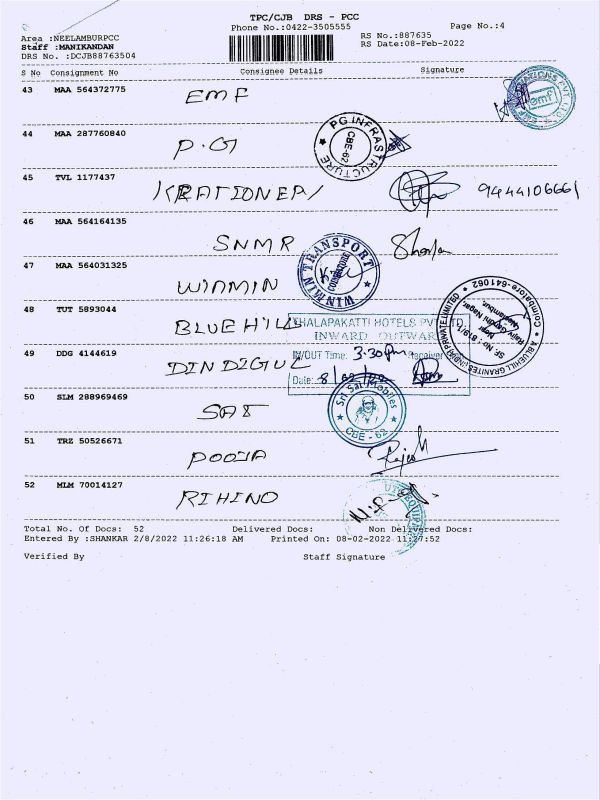 TPC/CJB DRS - PCC
Phone No.:0422-3505555
Page No.:4
Area :NEELAMBURPCC
Staff :MANIKANDAN
DRS No. :DCJB88763504
RS No.:887635
RS Date:08-Feb-2022
S No Consignment No Consignee Details Signature
43 MAA 564372775 EMF
emf
44 MAA 287760840 P.G
PG INFRASTRUCTURE
CBE-62
45 TVL 1177437 9444106661
46 MAA 564164135 SNMR
47 MAA 564031325 WINMIN
WINMIN TRANSPORT
COIMBATORE
48 TUT 5893044 BLUE HILL
A BLUEHILL GRANITES (INDIA) PRIVATE LIMITED
Coimbatore-641062
SF No: 819/1
Rajiv Gandhi Nagar,
Near
Neelambur,
THALAPAKATTI HOTELS PVT LTD
INWARD OUTWARD
49 DDG 4144619 DINDIGUL
IN/OUT Time: 3.30pm Receiver
Date: 8/02/22
50 SLM 288969469 SAI
Sri Sai Mobiles
CBE - 62
51 TRZ 50526671 POOJA
52 MLM 70014127 RIHINO
Total No. Of Docs: 52 Delivered Docs: Non Delivered Docs:
Entered By :SHANKAR 2/8/2022 11:26:18 AM Printed On: 08-02-2022 11:27:52
Verified By Staff Signature